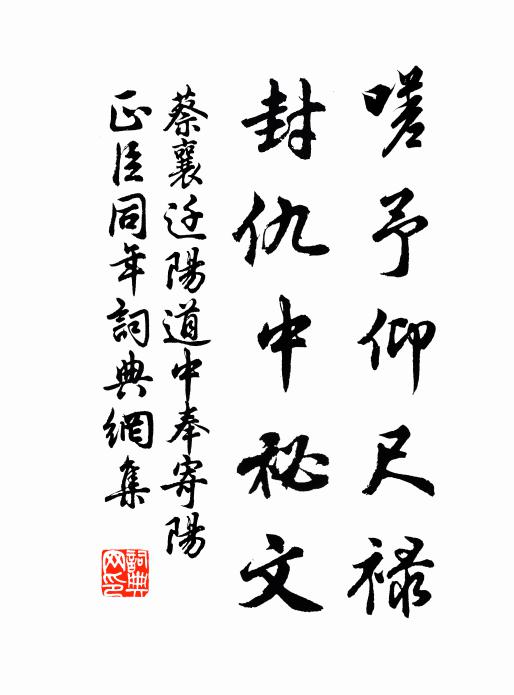 嗟予仰尺祿
封仇中秘文
蔡襄迂陽道中奉寄陽
正臣同年詞典網集
詞典網印